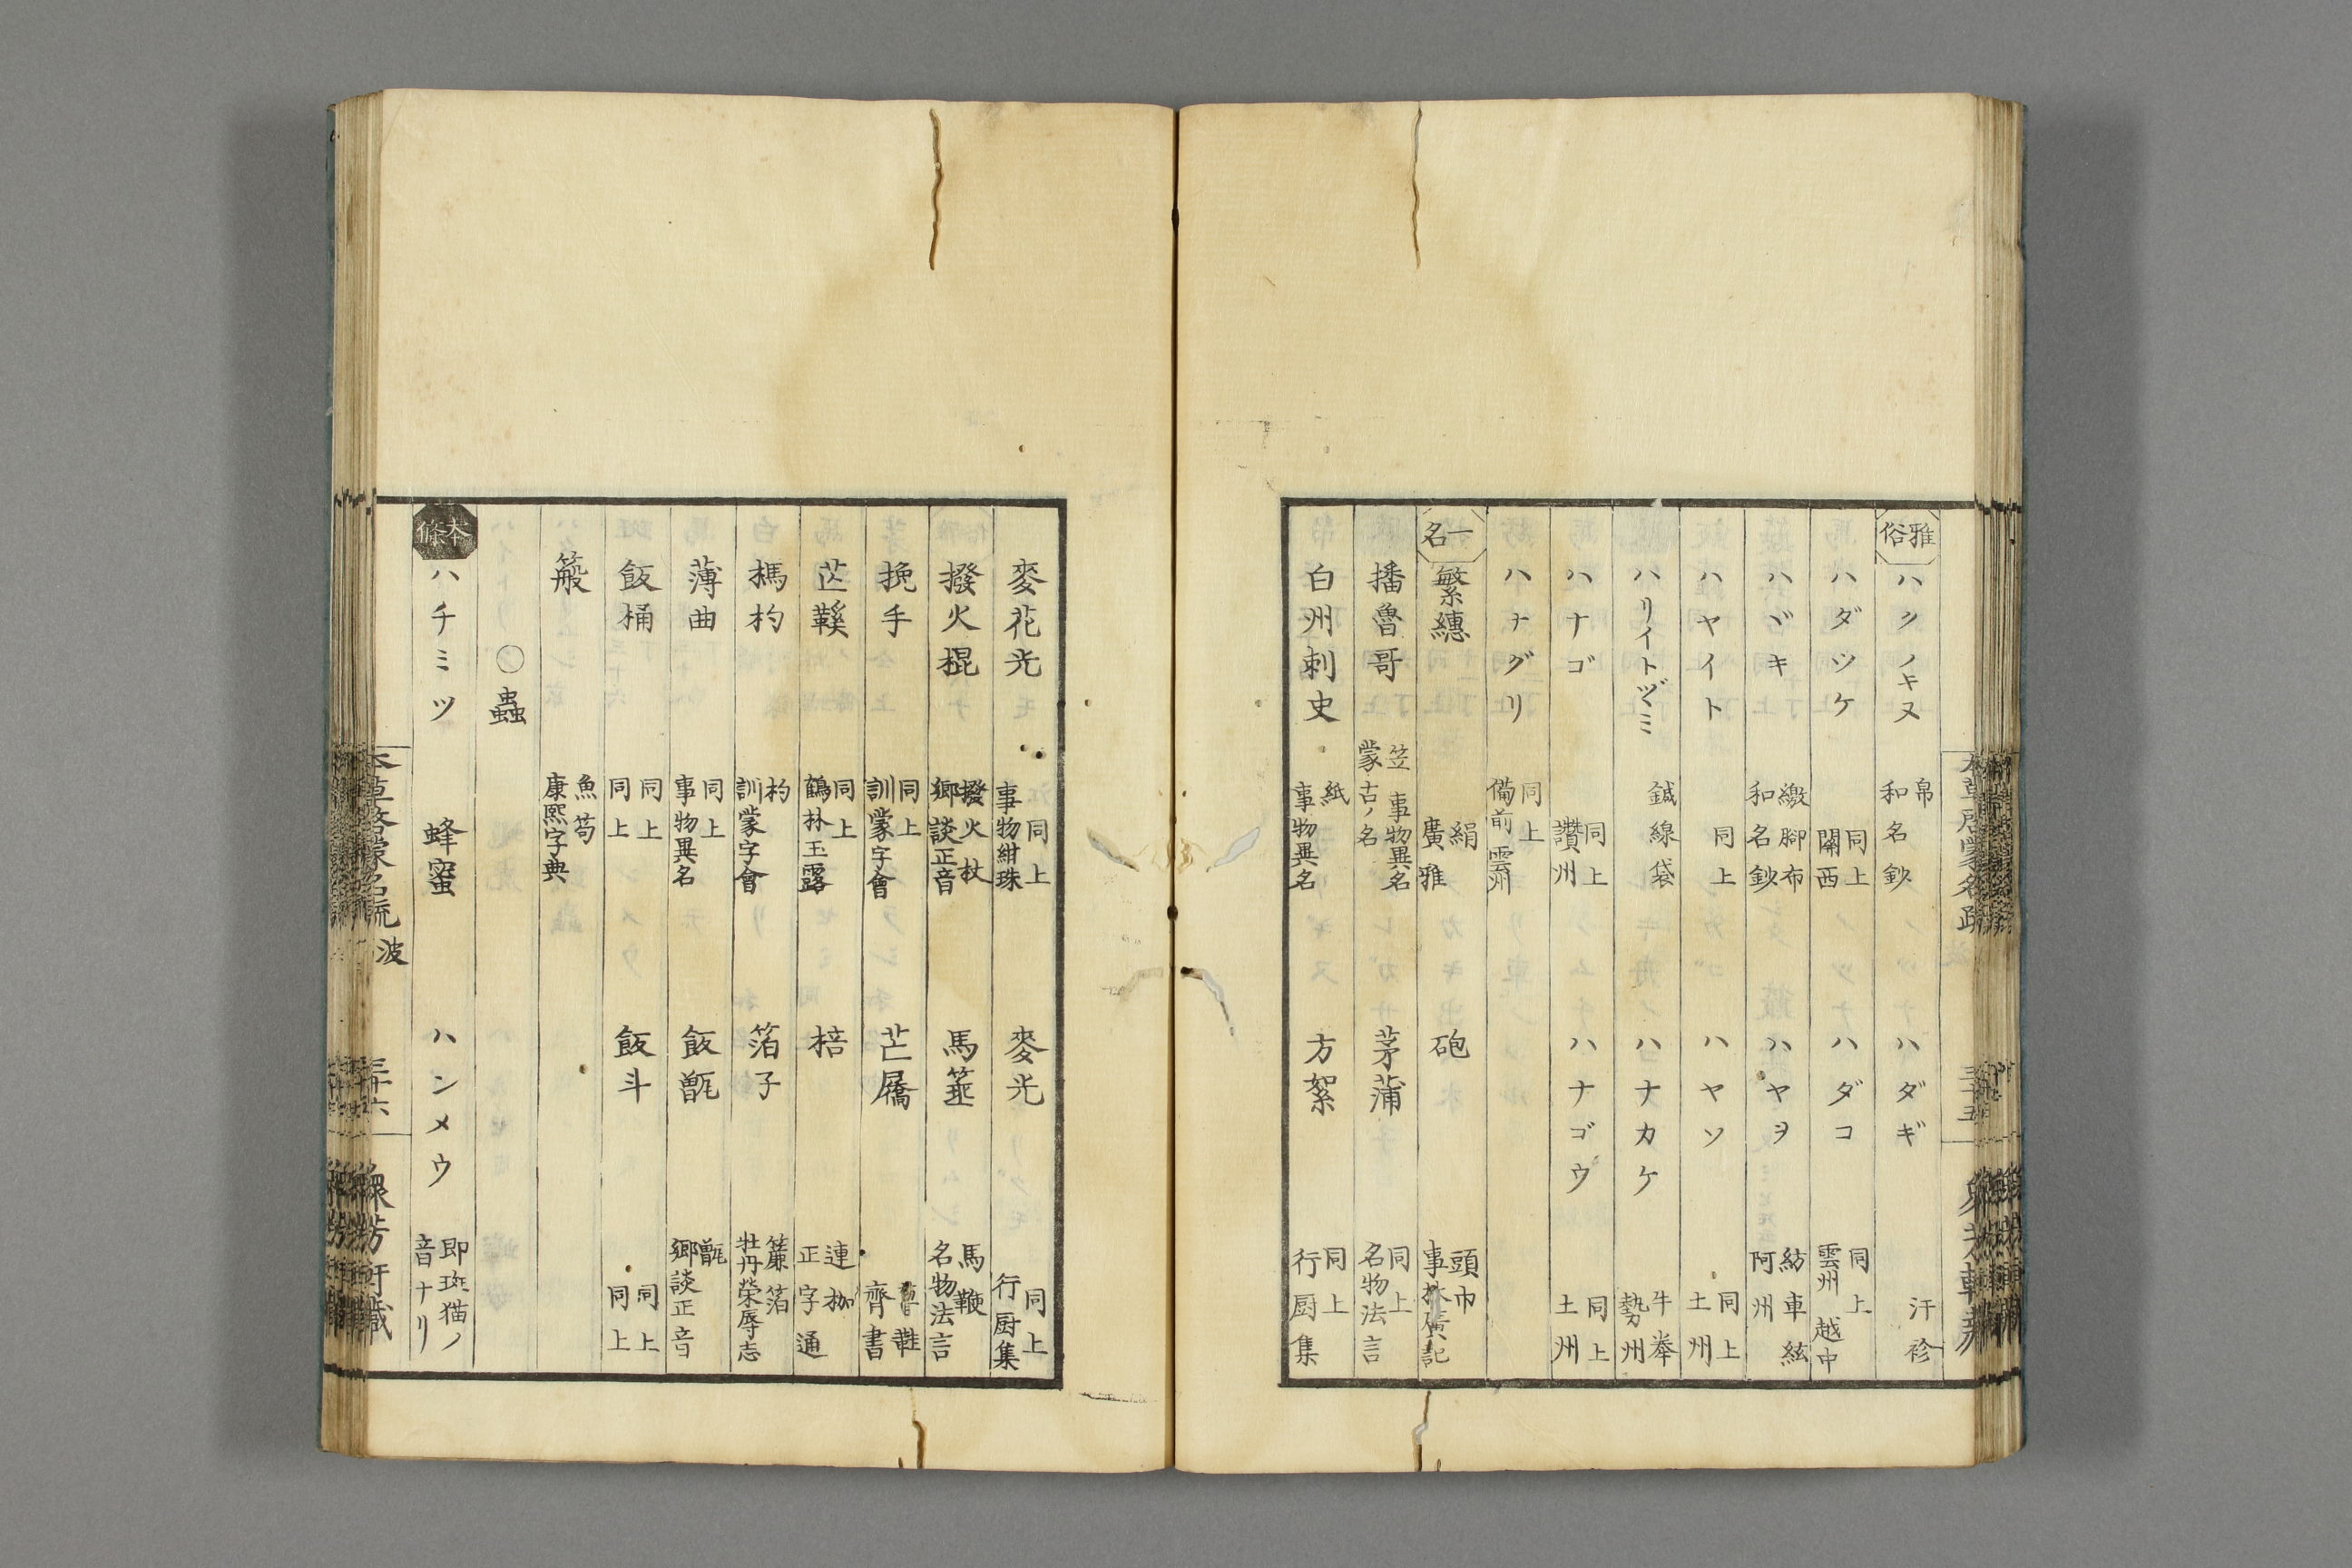 雅俗 ハクノキヌ 帛 和名鈔 ハダギ 汗袗
ハダツケ 同上 關西 ハダコ 同上 雲州 越中
ハヾキ 繳脚布 和名鈔 ハヤヲ 紡車絃 阿州
ハヤイト 同上 ハヤソ 同上 土州
ハリイトヅヾミ 鍼線袋 ハナカケ 牛桊 勢州
ハナゴ 同上 讚州 ハナゴウ 同上 土州
ハナグリ 同上 備前 雲州
一名 繁繐 絹 廣雅 砲 頭巾 事林廣記
播魯哥 笠 蒙古ノ名 事物異名 茅蒲 同上 名物法言
白州刺史 紙 事物異名 方絮 同上 行厨集
本草啓蒙名疏 三十五
麥花光 同上 事物紺珠 麥光 同上 行厨集
撥火棍 撥火杖 鄉談正音 馬箠 馬鞭 名物法言
挽手 同上 訓蒙字會 芒屩 齊書
芒鞵 同上 鶴林玉露 棓 連枷 正字通
榪杓 杓 訓蒙字會 箔子 簾箔 牡丹榮辱志
薄曲 同上 事物異名 飯甑 甑 鄉談正音
飯桶 同上 同上 飯斗 同上 同上
䈲 魚笱 康熙字典
○蟲
本條 ハチミツ 蜂蜜 ハンメウ 即斑猫ノ音ナリ
本草啓蒙名疏 波 三十六 衆芳軒藏